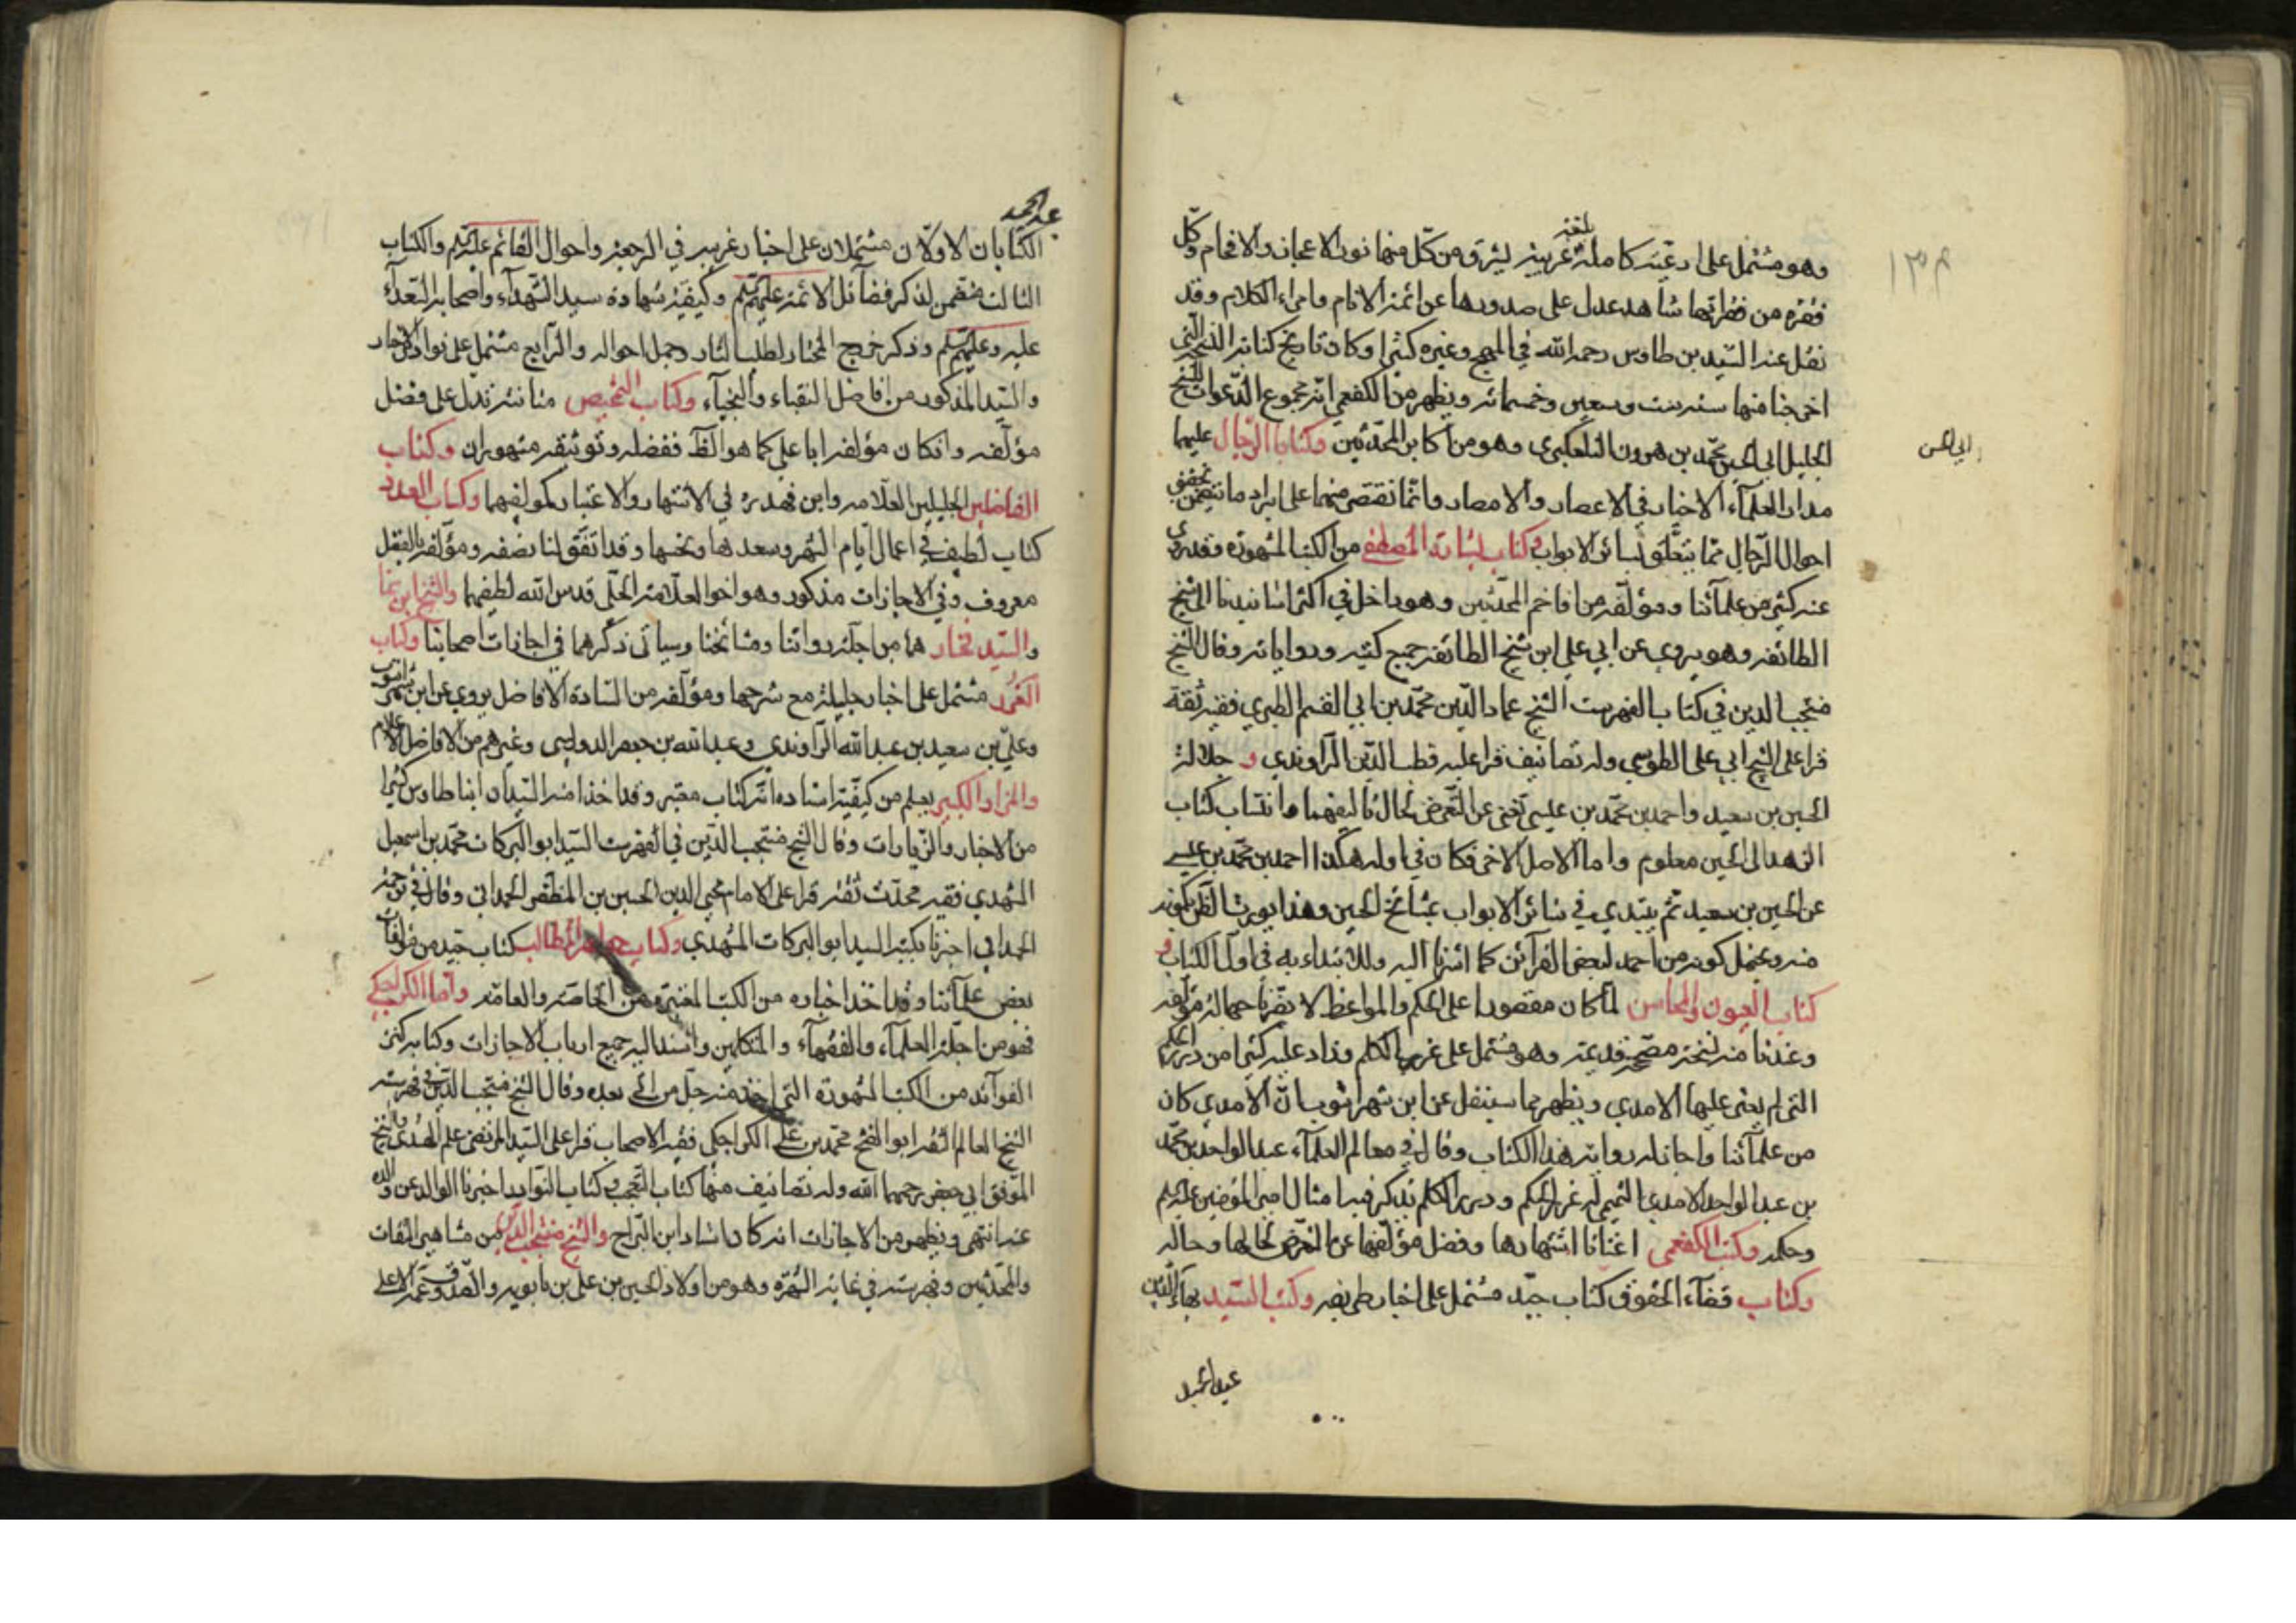 وهو مشتمل على ادعية كاملة بليغة غريبة يشرق من كل منها نور الاعجاز والافحام وكل
فقرة من فقراتها شاهد عدل على صدورها عن ائمة الانام وامراء الكلام وقد
نقل عنه السيد بن طاوس رحمه الله في المهج وغيره كثيرا وكان تاريخ كتابة النسخة التي
اخرجنا منها سنة ست وسبعين وخمسمائة ويظهر من الكفعمي انه مجموع الدعوات للشيخ
الجليل ابي الحسين محمد بن هرون التلعكبري وهو من اكابر المحدثين وكتابا الرجال عليهما
ابي الحسن
مدار العلماء الاخيار في الاعصار والامصار وانما نقتصر منهما على ايراد ما يتضمن تحقيق
احوال الرجال مما يتعلق بسائر الابواب وكتاب بشارة المصطفى من الكتب المشهورة وقد روى
عنه كثير من علمائنا ومؤلفه من افاخم المحدثين وهو داخل في اكثر اسانيدنا الى شيخ
الطائفة وهو يروي عن ابي علي ابن شيخ الطائفة جميع كتبه ورواياته وقال الشيخ
منتجب الدين في كتاب الفهرست الشيخ عماد الدين محمد بن ابي القسم الطبري فقيه ثقة
قرا على الشيخ ابي علي الطوسي وله تصانيف قرا عليه قطب الدين الراوندي و جلالة
الحسين بن سعيد واحمد بن محمد بن عيسى تغني عن التعرض لحال تاليفهما وانتساب كتاب
الزهد الى الحسين معلوم واما الاصل الاخر فكان في اوله هكذا احمد بن محمد بن عيسى
عن الحسين بن سعيد ثم يبتدي في سائر الابواب بمشائخ الحسين وهذا يورث الظن بكونه
منه ويحتمل كونه من احمد لبعض القرائن كما اشرنا اليه وللابتداء به في اول الكتاب و
كتاب العيون والمحاسن لما كان مقصورا على الحكم والمواعظ لا يضرنا جهالة مؤلفه
وعندنا منه نسخة مصححة قديمة وهو مشتمل على غرر الكلم وزاد عليه كثيرا من درر الحكم
التي لم يعثر عليها الامدي ويظهر مما سينقل عن ابن شهراشوب ان الامدي كان
من علمائنا واجاز له رواية هذا الكتاب وقال في معالم العلماء عبد الواحد بن محمد
بن عبد الواحد الامدي التميمي له غرر الحكم ودرر الكلم يذكر فيه امثال امير المؤمنين عليه السلم
وحكمه وكتب الكفعمي اغنانا اشتهارها وفضل مؤلفها عن التعرض لحالها وحاله
وكتاب قضاء الحقوق كتاب جيد مشتمل على اخبار طريفة وكتب السيد بهاء الدين
عبد الحميد
عبد الحميد
الكتابان الاولان مشتملان على اخبار غريبة في الرجعة واحوال القائم عليه السلم والكتاب
الثالث متضمن لذكر فضائل الائمة عليهم السلم وكيفية شهادة سيد الشهداء واصحابه السعداء
عليه وعليهم السلم وذكر خروج المختار لطلب الثار وجمل احواله والرابع مشتمل على نوادر الاخبار
والسيد المذكور من افاضل النقباء والنجباء وكتاب التمحيص متانته تدل على فضل
مؤلفه وان كان مؤلفه ابا علي كما هو الظ ففضله وتوثيقه مشهوران وكتاب
الفاضلين الجليلين العلامة وابن فهد ره في الاشتهار والاعتبار كمؤلفهما وكتاب العدد
كتاب لطيف في اعمال ايام الشهر وسعدها ونحسها وقد اتفق لنا نصفه ومؤلفه بالفضل
معروف وفي الاجازات مذكور وهو اخو العلامة الحلي قدس الله لطيفهما والشيخ ابن نما
والسيد فخار هما من اجلة رواتنا ومشائخنا وسياتي ذكرهما في اجازات اصحابنا وكتاب
الغرر مشتمل على اخبار جليلة مع شرحها ومؤلفه من السادة الافاضل يروي عن ابن شهراشوب
وعلي بن سعيد بن عبد الله الراوندي وعبد الله بن جعفر الدوريستي وغيرهم من الافاضل الاعلام
والمزار الكبير يعلم من كيفية اسناده انه كتاب معتبر وقد اخذ منه السيدان ابنا طاوس كثيرا
من الاخبار والزيارات وقال الشيخ منتجب الدين في الفهرست السيد ابو البركات محمد بن اسمعيل
المشهدي فقيه محدث ثقة قرا على الامام محيي الدين الحسين بن المظفر الحمداني وقال في ترجمة
الحمداني اخبرنا بكتبه السيد ابو البركات المشهدي وكتاب جواهر المطالب كتاب جيد من مؤلفات
بعض علمائنا وقد اخذ اخباره من الكتب المعتبرة من الخاصة والعامة واما الكراجكي
فهو من اجلة العلماء والفقهاء والمتكلمين واسند اليه جميع ارباب الاجازات وكتابه كنز
الفوائد من الكتب المشهورة التي اخذ منه جل من اتى بعده وقال الشيخ منتجب الدين في فهرسته
الشيخ العالم الثقة ابو الفتح محمد بن علي الكراجكي فقيه الاصحاب قرا على السيد المرتضى علم الهدى والشيخ
الموفق ابي جعفر رحمهما الله وله تصانيف منها كتاب التعجب وكتاب النوادر اخبرنا الوالد عن والده
عنه انتهى ويظهر من الاجازات انه كان استاد ابن البراج والشيخ منتجب الدين من مشاهير الثقات
والمحدثين وفهرسته في غاية الشهرة وهو من اولاد الحسين بن علي بن بابويه والصدوق عمه الاعلى